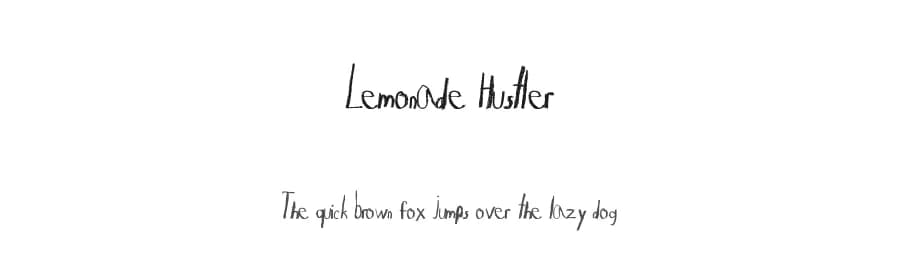 Lemonade Hustler
The quick brown fox jumps over the lazy dog